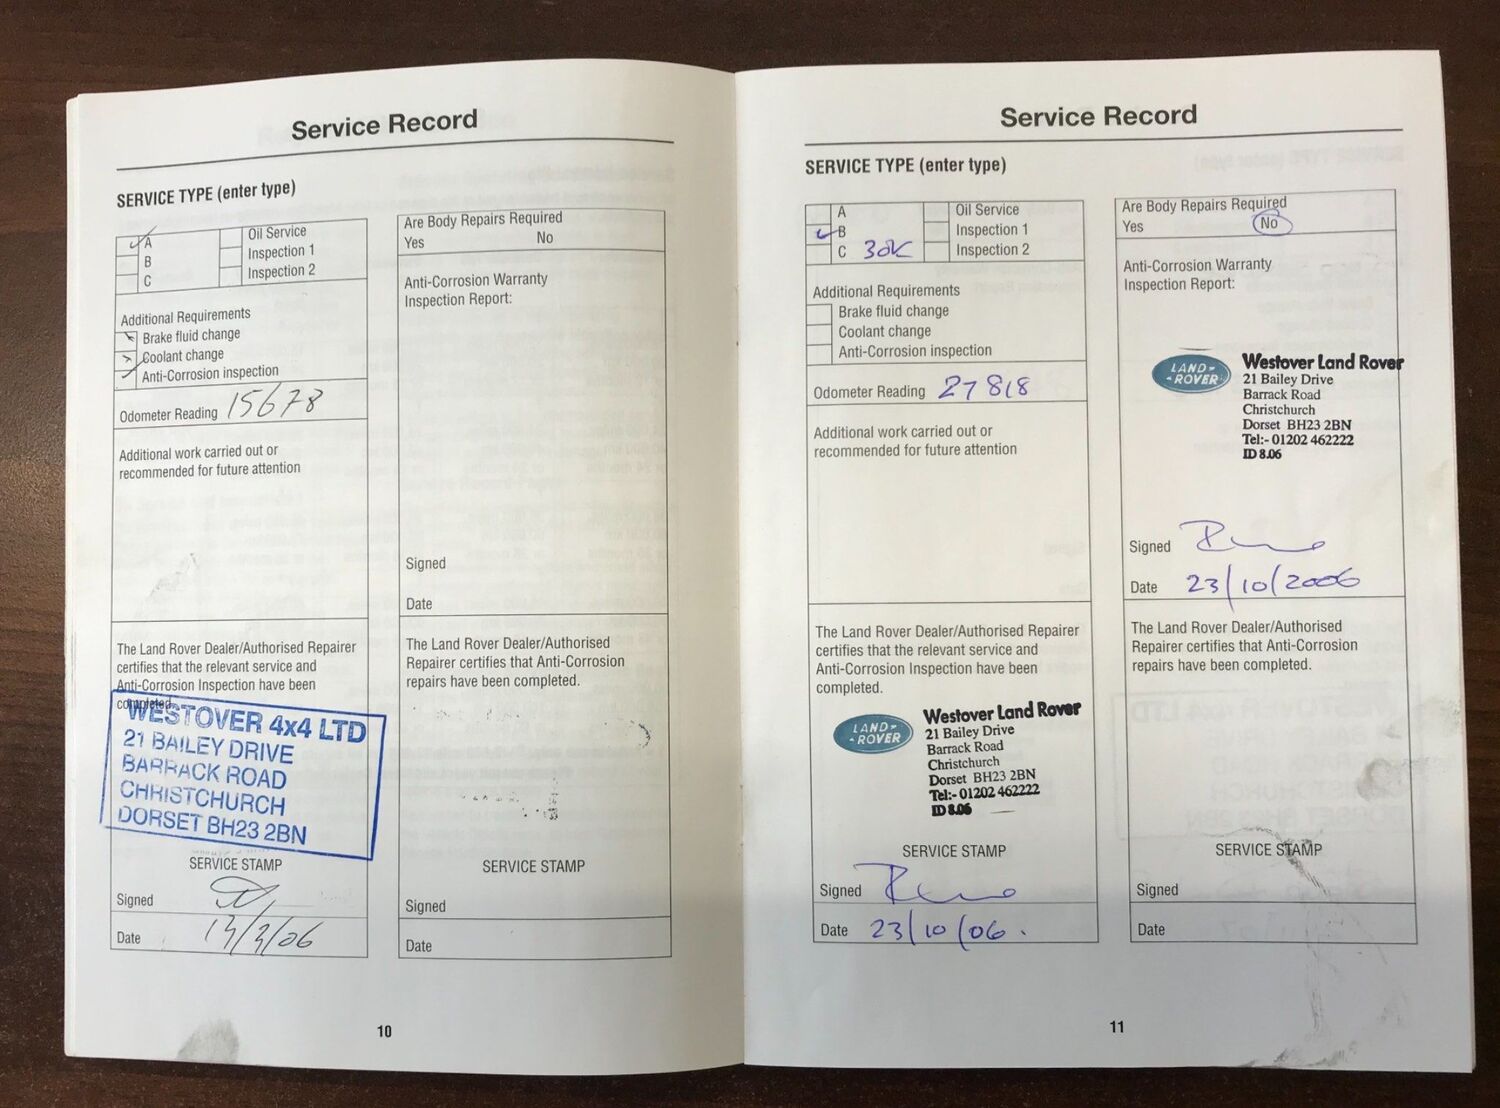 Service Record
SERVICE TYPE (enter type)
A
B
C
Oil Service
Inspection 1
Inspection 2
Additional Requirements
Brake fluid change
Coolant change
Anti-Corrosion inspection
Odometer Reading 15678
Additional work carried out or
recommended for future attention
The Land Rover Dealer/Authorised Repairer
certifies that the relevant service and
Anti-Corrosion Inspection have been
completed.
WESTOVER 4x4 LTD
21 BAILEY DRIVE
BARRACK ROAD
CHRISTCHURCH
DORSET BH23 2BN
SERVICE STAMP
Signed
Date
Are Body Repairs Required
Yes No
Anti-Corrosion Warranty
Inspection Report:
Signed
Date
The Land Rover Dealer/Authorised
Repairer certifies that Anti-Corrosion
repairs have been completed.
SERVICE STAMP
Signed
Date
10
Service Record
SERVICE TYPE (enter type)
A
B
C 30K
Oil Service
Inspection 1
Inspection 2
Additional Requirements
Brake fluid change
Coolant change
Anti-Corrosion inspection
Odometer Reading 27818
Additional work carried out or
recommended for future attention
The Land Rover Dealer/Authorised Repairer
certifies that the relevant service and
Anti-Corrosion Inspection have been
completed.
LAND-
-ROVER
Westover Land Rover
21 Bailey Drive
Barrack Road
Christchurch
Dorset BH23 2BN
Tel:- 01202 462222
ID 8.06
SERVICE STAMP
Signed
Date 23/10/06.
Are Body Repairs Required
Yes No
Anti-Corrosion Warranty
Inspection Report:
LAND-
-ROVER
Westover Land Rover
21 Bailey Drive
Barrack Road
Christchurch
Dorset BH23 2BN
Tel:- 01202 462222
ID 8.06
Signed
Date 23/10/2006
The Land Rover Dealer/Authorised
Repairer certifies that Anti-Corrosion
repairs have been completed.
SERVICE STAMP
Signed
Date
11